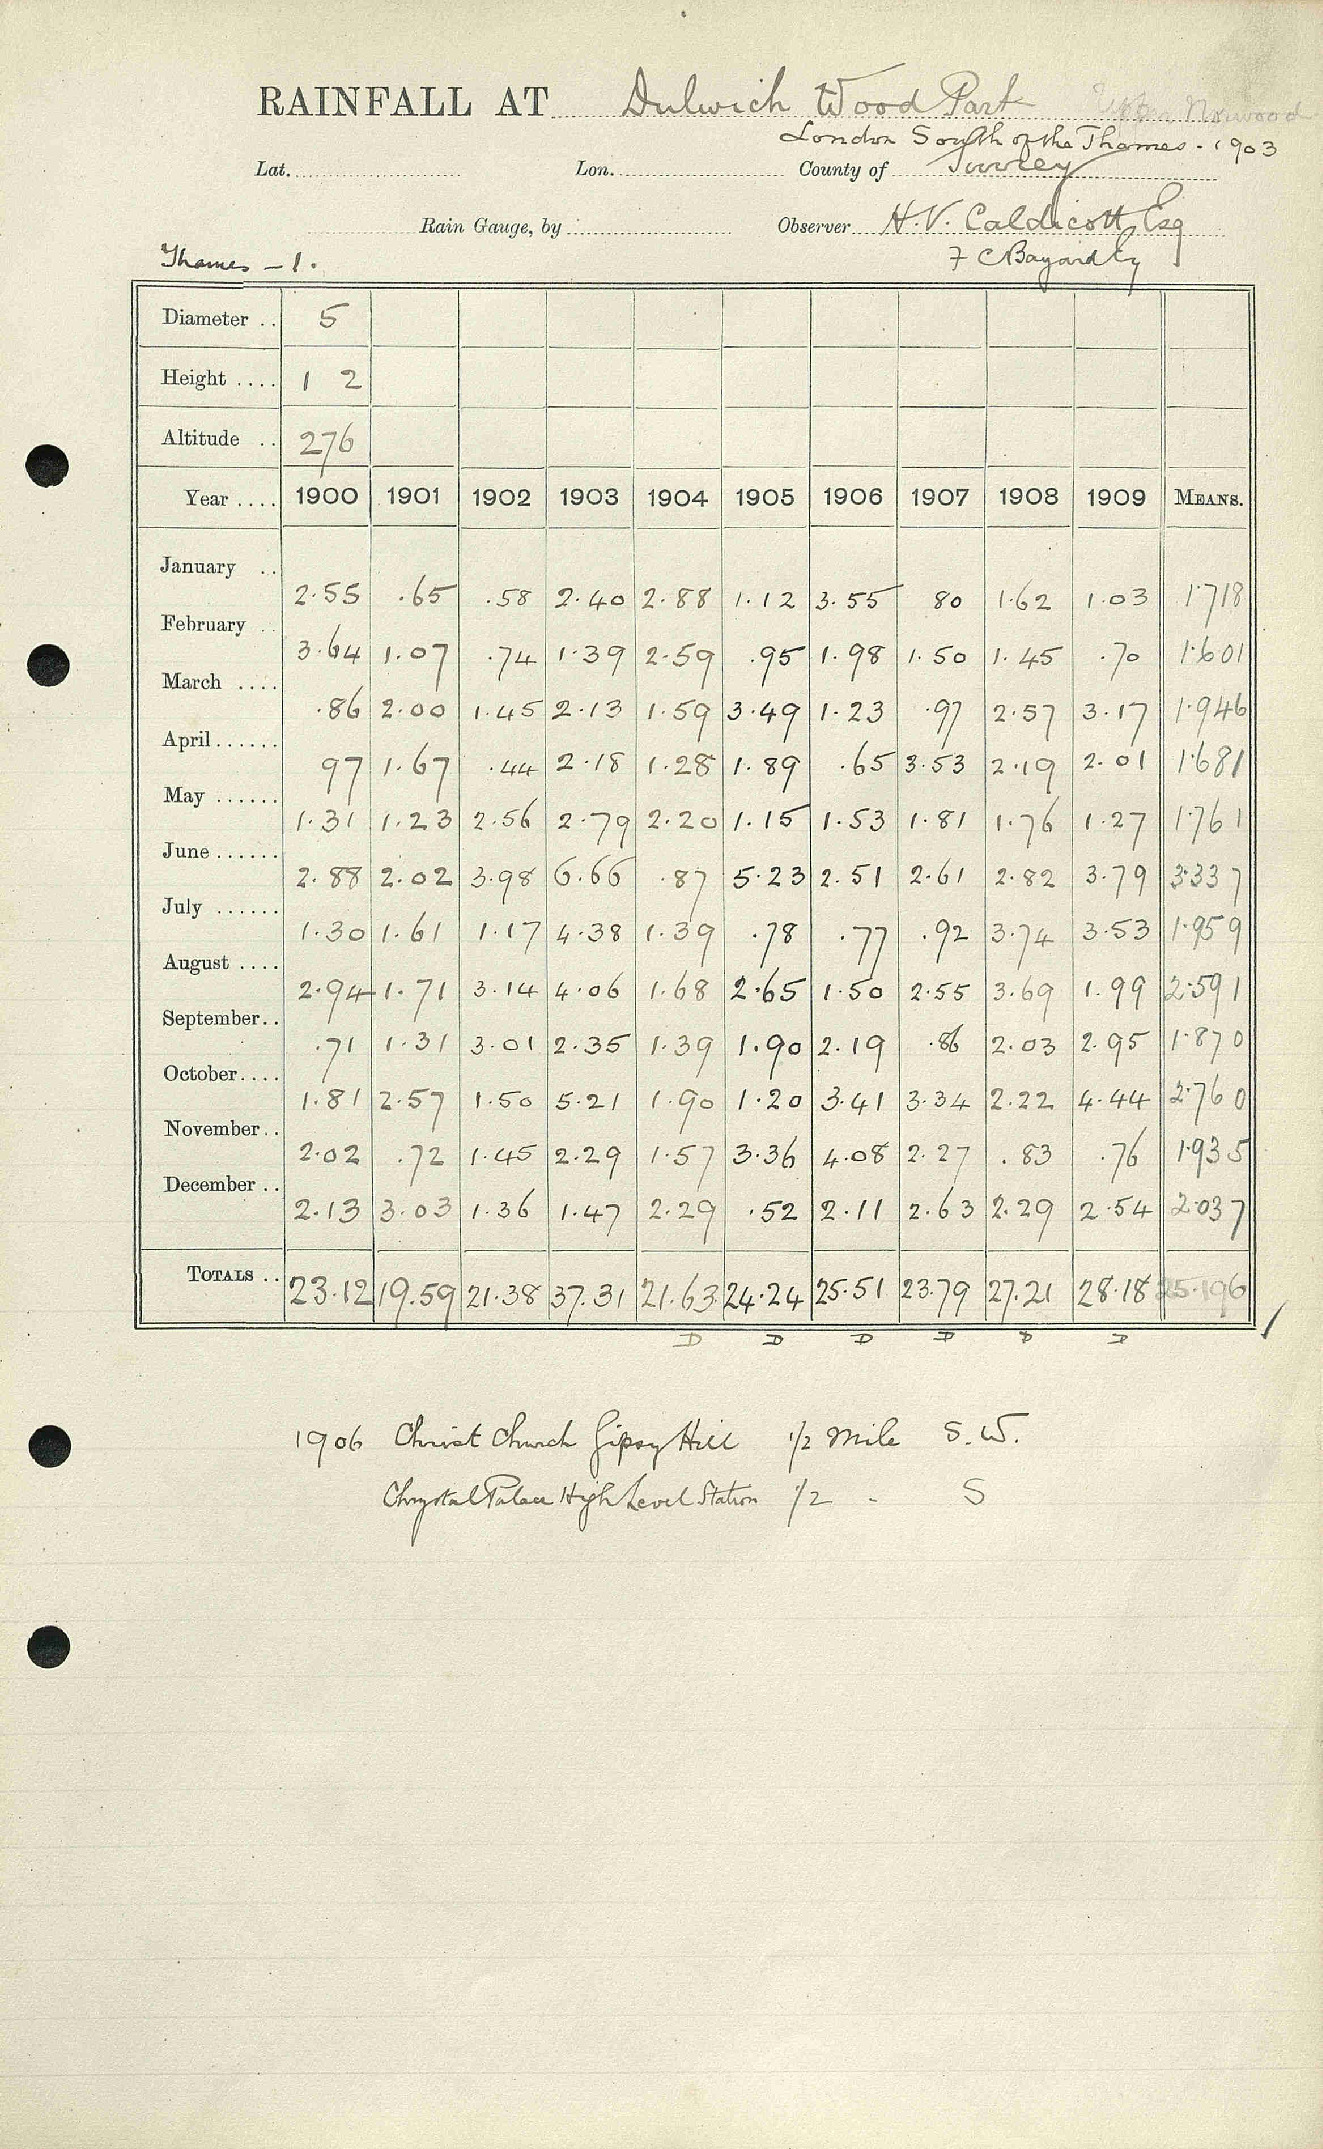 RAINFALL AT Dulwich Wood Park Upper Norwood
London South of the Thames - 1903
Lat. Lon. County of Surrey
Rain Gauge, by Observer H.V. Caldicott Esq
Thames - 1. F C Bayard Esq
Diameter .. 5
Height .... 1 2
Altitude .. 276
Year .... 1900 1901 1902 1903 1904 1905 1906 1907 1908 1909 MEANS.
January .. 2.55 .65 .58 2.40 2.88 1.12 3.55 80 1.62 1.03 1.718
February .. 3.64 1.07 .74 1.39 2.59 .95 1.98 1.50 1.45 .70 1.601
March .... .86 2.00 1.45 2.13 1.59 3.49 1.23 .97 2.57 3.17 1.946
April ...... 97 1.67 .44 2.18 1.28 1.89 .65 3.53 2.19 2.01 1.681
May ...... 1.31 1.23 2.56 2.79 2.20 1.15 1.53 1.81 1.76 1.27 1.761
June ...... 2.88 2.02 3.98 6.66 .87 5.23 2.51 2.61 2.82 3.79 3.337
July ...... 1.30 1.61 1.17 4.38 1.39 .78 .77 .92 3.74 3.53 1.959
August .... 2.94 1.71 3.14 4.06 1.68 2.65 1.50 2.55 3.69 1.99 2.591
September .. .71 1.31 3.01 2.35 1.39 1.90 2.19 .86 2.03 2.95 1.870
October .... 1.81 2.57 1.50 5.21 1.90 1.20 3.41 3.34 2.22 4.44 2.760
November .. 2.02 .72 1.45 2.29 1.57 3.36 4.08 2.27 .83 .76 1.935
December .. 2.13 3.03 1.36 1.47 2.29 .52 2.11 2.63 2.29 2.54 2.037
TOTALS .. 23.12 19.59 21.38 37.31 21.63 24.24 25.51 23.79 27.21 28.18 25.196
D D D D D D
1906 Christ Church Gipsy Hill 1/2 Mile S.W.
Chrystal Palace High Level Station 1/2 - S